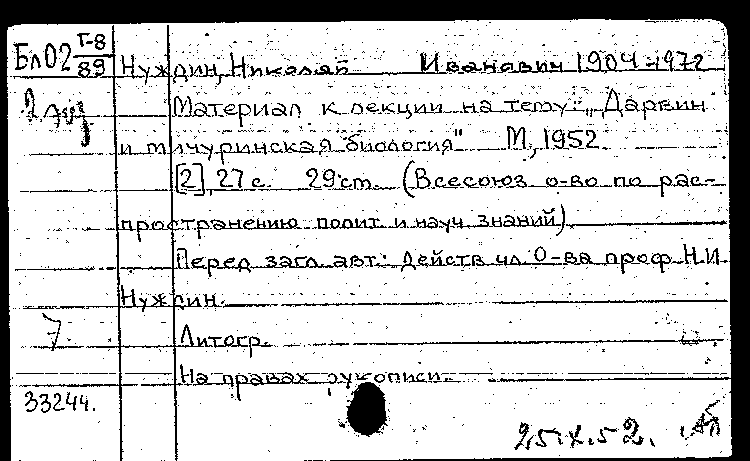 Бл02 Г-8/89
Нуждин, Николай Иванович 1904-1972
2 экз
Материал к лекции на тему: „Дарвин
и мичуринская биология" М., 1952.
[2], 27 с. 29 см. (Всесоюз. о-во по рас-
пространению полит. и науч. знаний).
Перед загл. авт.: Действ. чл. О-ва проф. Н.И.
Нуждин.
7.
Литогр.
На правах рукописи.
33244.
25.X.52.